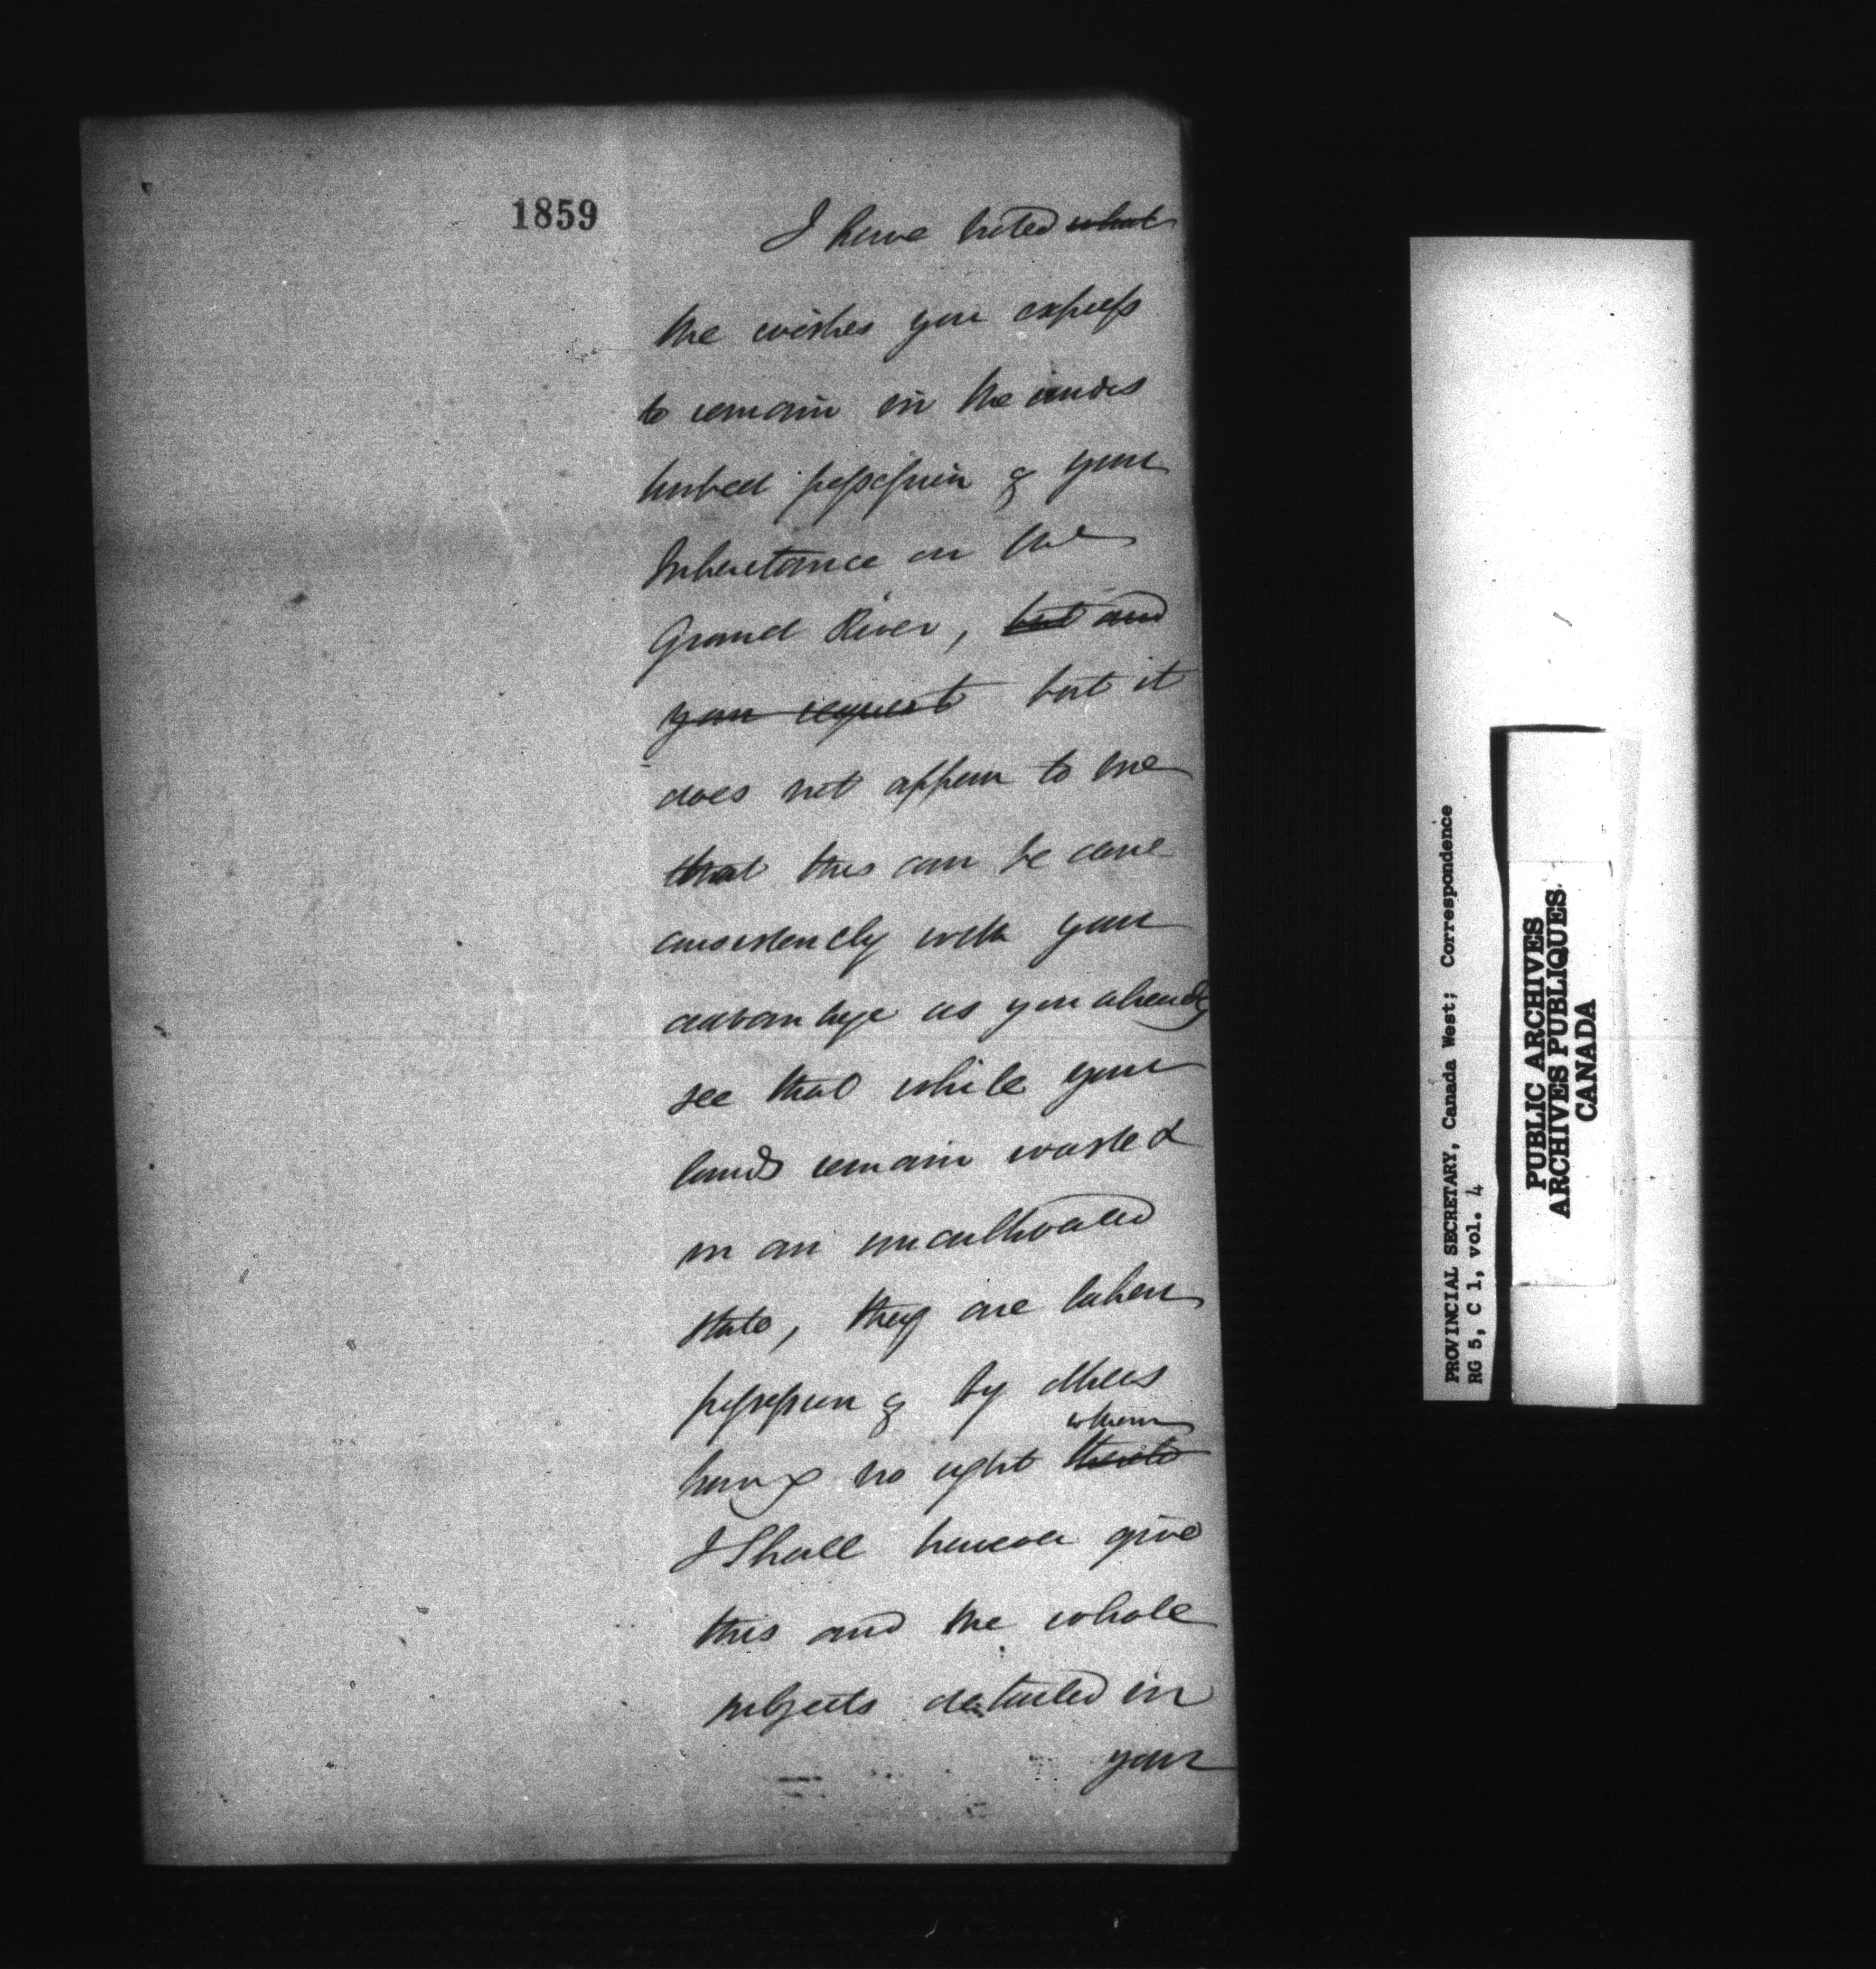 1859
I have noted what
the wishes you express
to remain in the undis
turbed possession of your
Inheritance on the
Grand River, but and
your request but it
does not appear to me
that this can be done
consistently with your
advantage as you already
see that while your
lands remain wasted
in an uncultivated
state, they are taken
possession of by others
whom
having no right thereto
I Shall however give
this and the whole
subjects detailed in
your
PROVINCIAL SECRETARY, Canada West; Correspondence
RG 5, C 1, vol. 4
PUBLIC ARCHIVES
ARCHIVES PUBLIQUES
CANADA